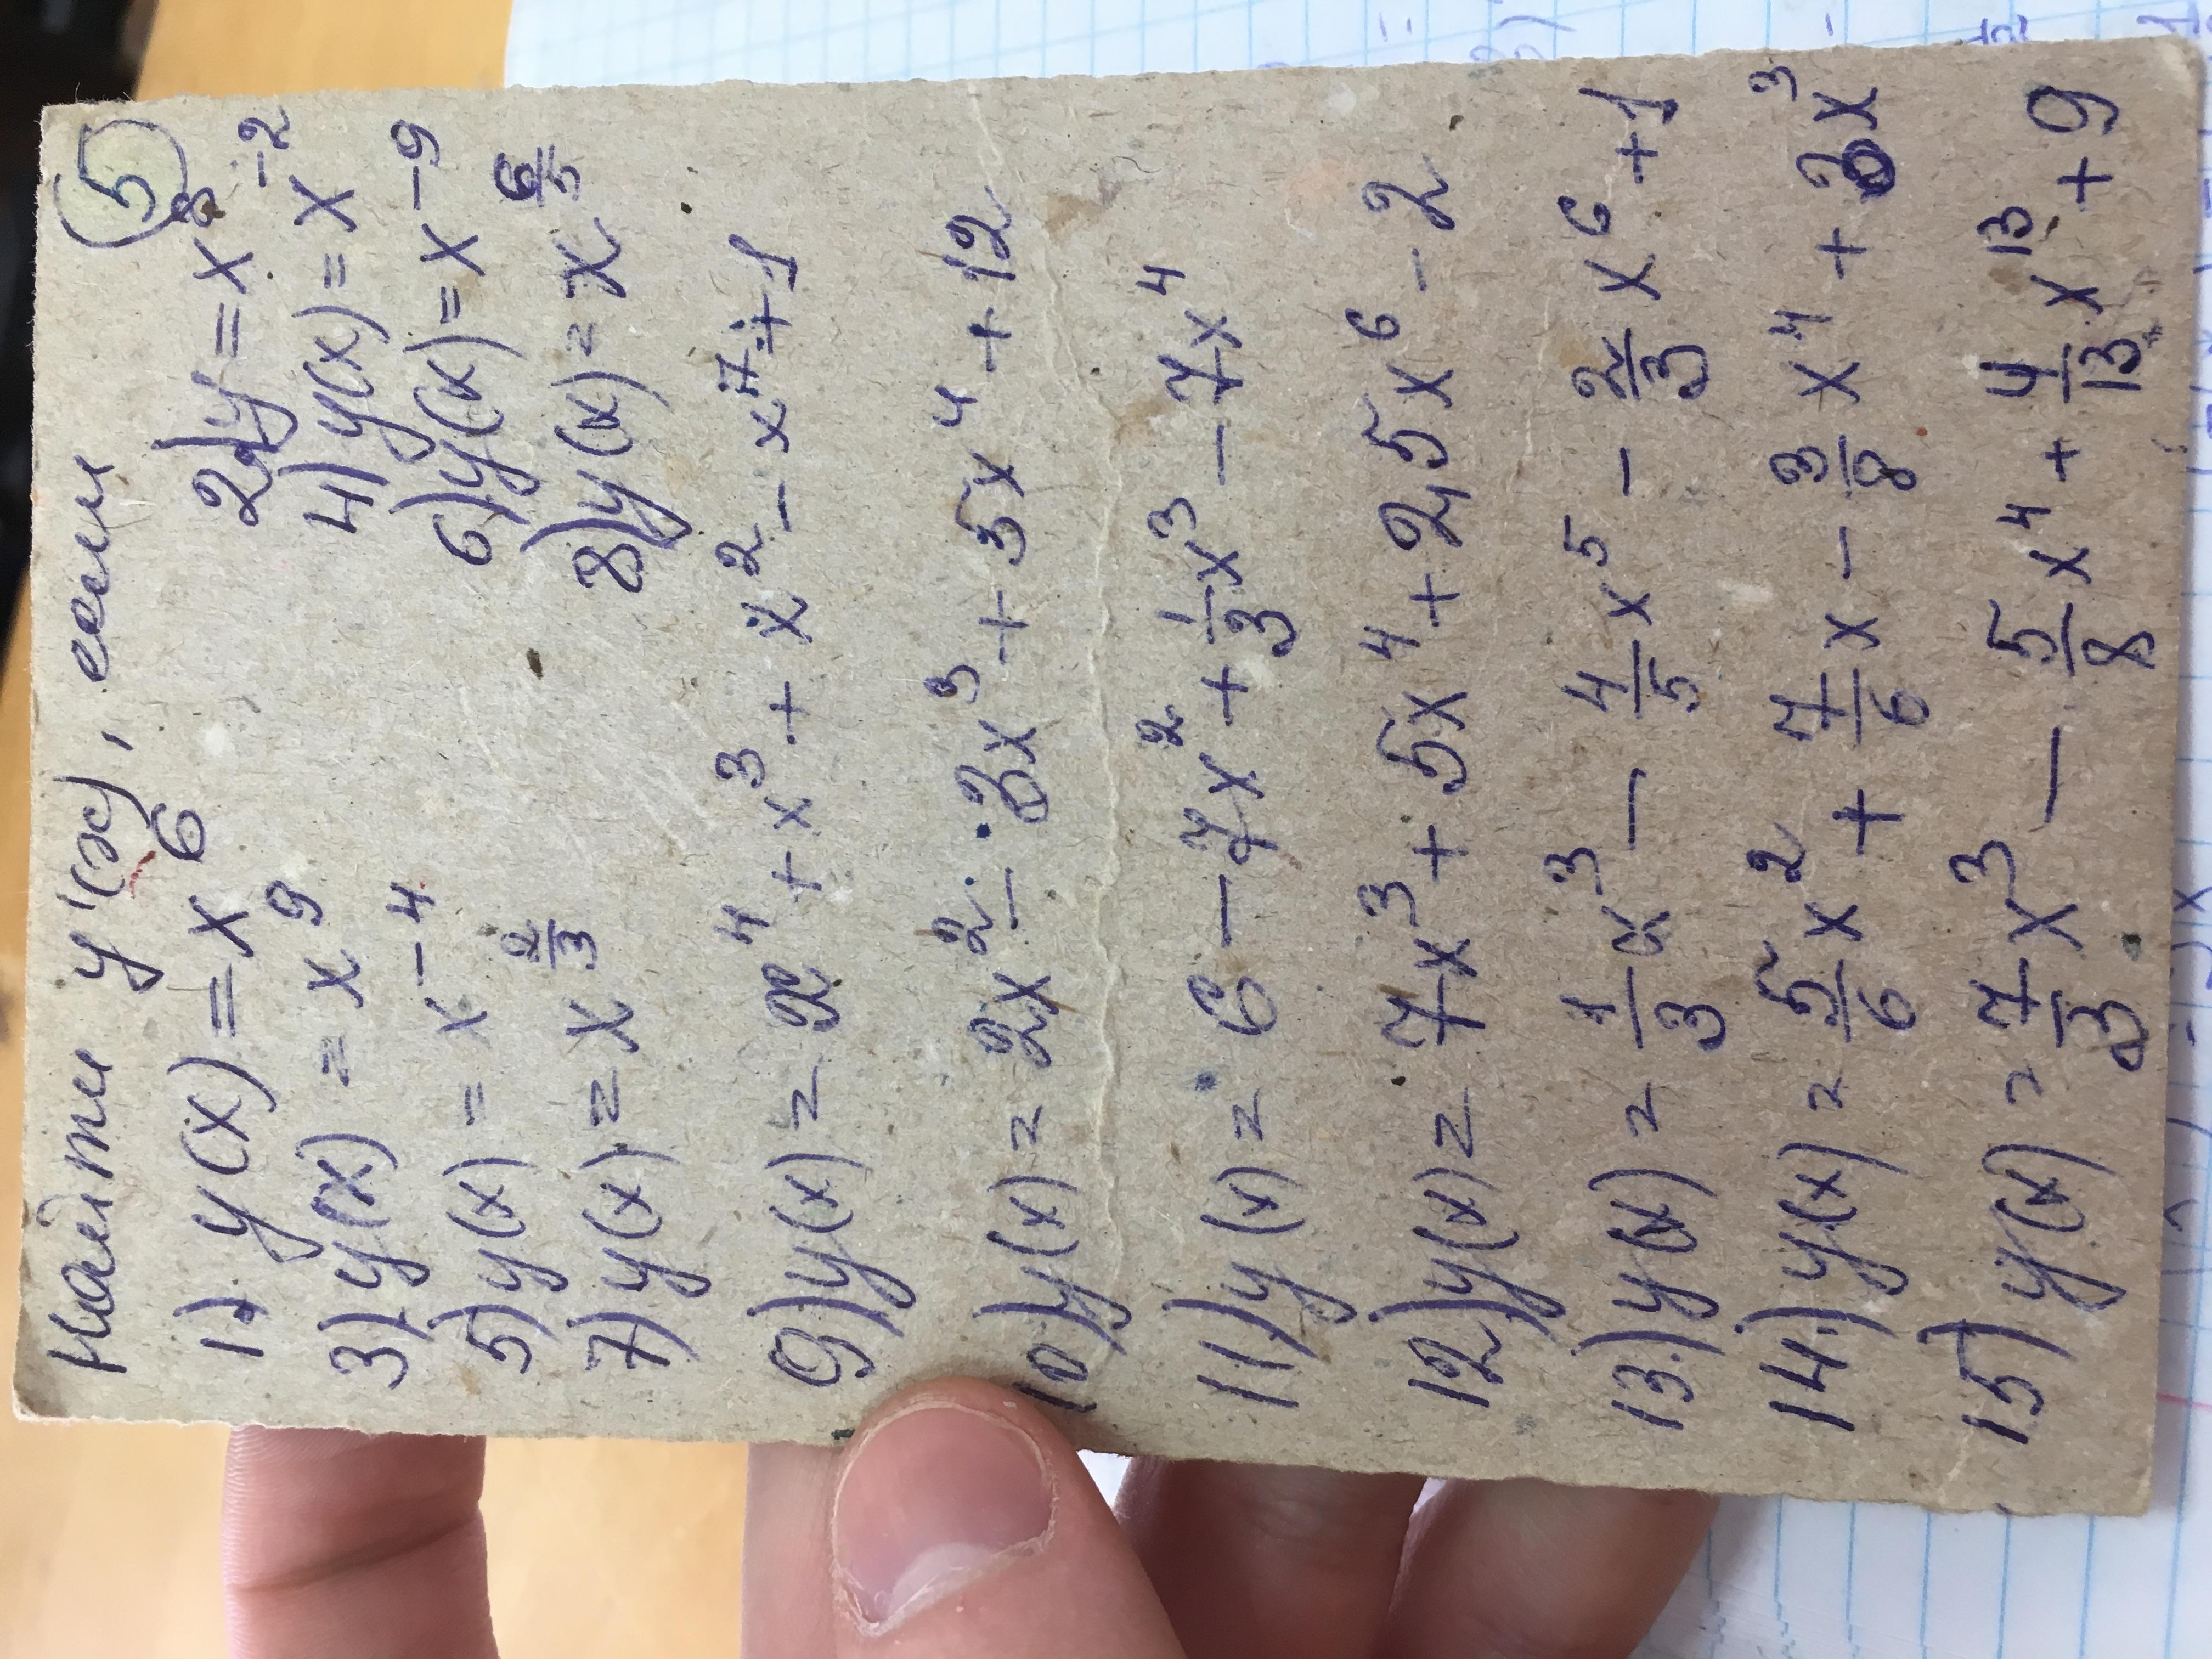 Найти y'(x), если (5)
1) y(x) = x⁶ 2) y = x⁸
3) y(x) = x⁹ 4) y(x) = x⁻²
5) y(x) = x⁻⁴ 6) y(x) = x⁻⁹
7) y(x) = x^(2/3) 8) y(x) = x^(6/5)
9) y(x) = x⁴ + x³ + x² - x⁷ + 1
10) y(x) = 2x² - 3x³ + 5x⁴ + 12
11) y(x) = 6 - 7x² + 1/3 x³ - 7x⁴
12) y(x) = 7x³ + 5x⁴ + 2,5x⁶ - 2
13) y(x) = 1/3 x³ - 4/5 x⁵ - 2/3 x⁶ + 1
14) y(x) = 5/6 x² + 7/6 x - 3/8 x⁴ + x³
15) y(x) = 7/3 x³ - 5/8 x⁴ + 4/13 x¹³ + 9